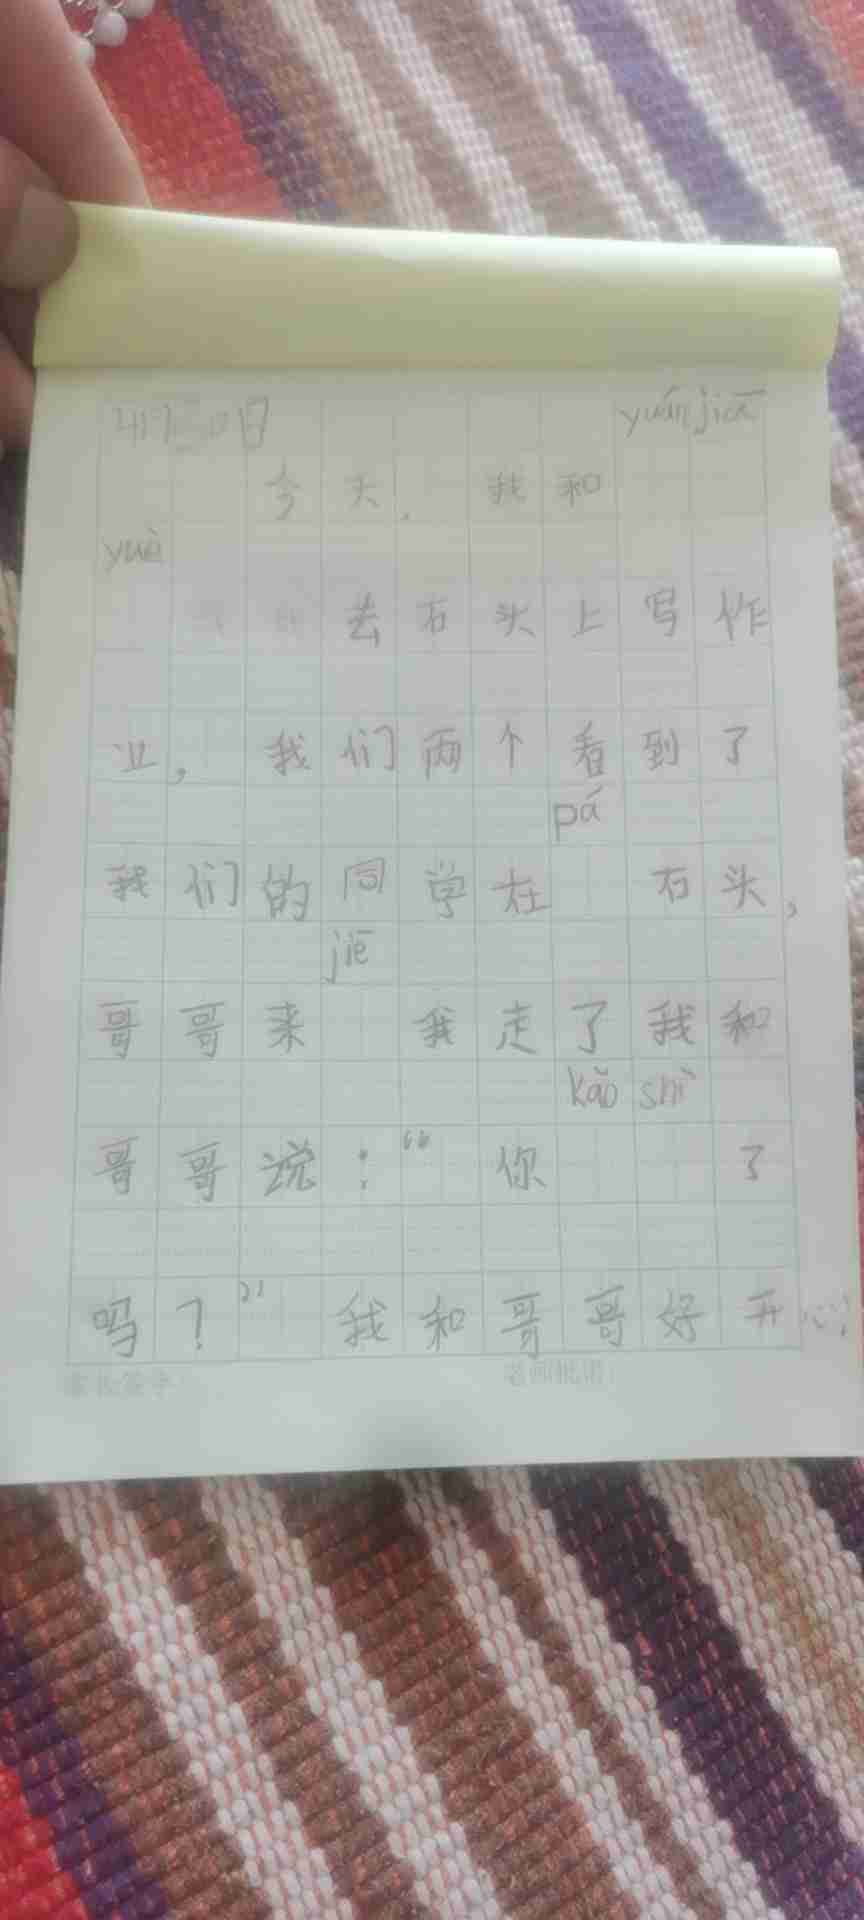 yuán jiā
今天，我和
yuè
去石头上写作
业，我们两个看到了
pá
我们的同学在 石头，
jiē
哥哥来 我走了我和
kǎo shì
哥哥说：“你 了
吗？”我和哥哥好开心
家长签字：
老师批语：